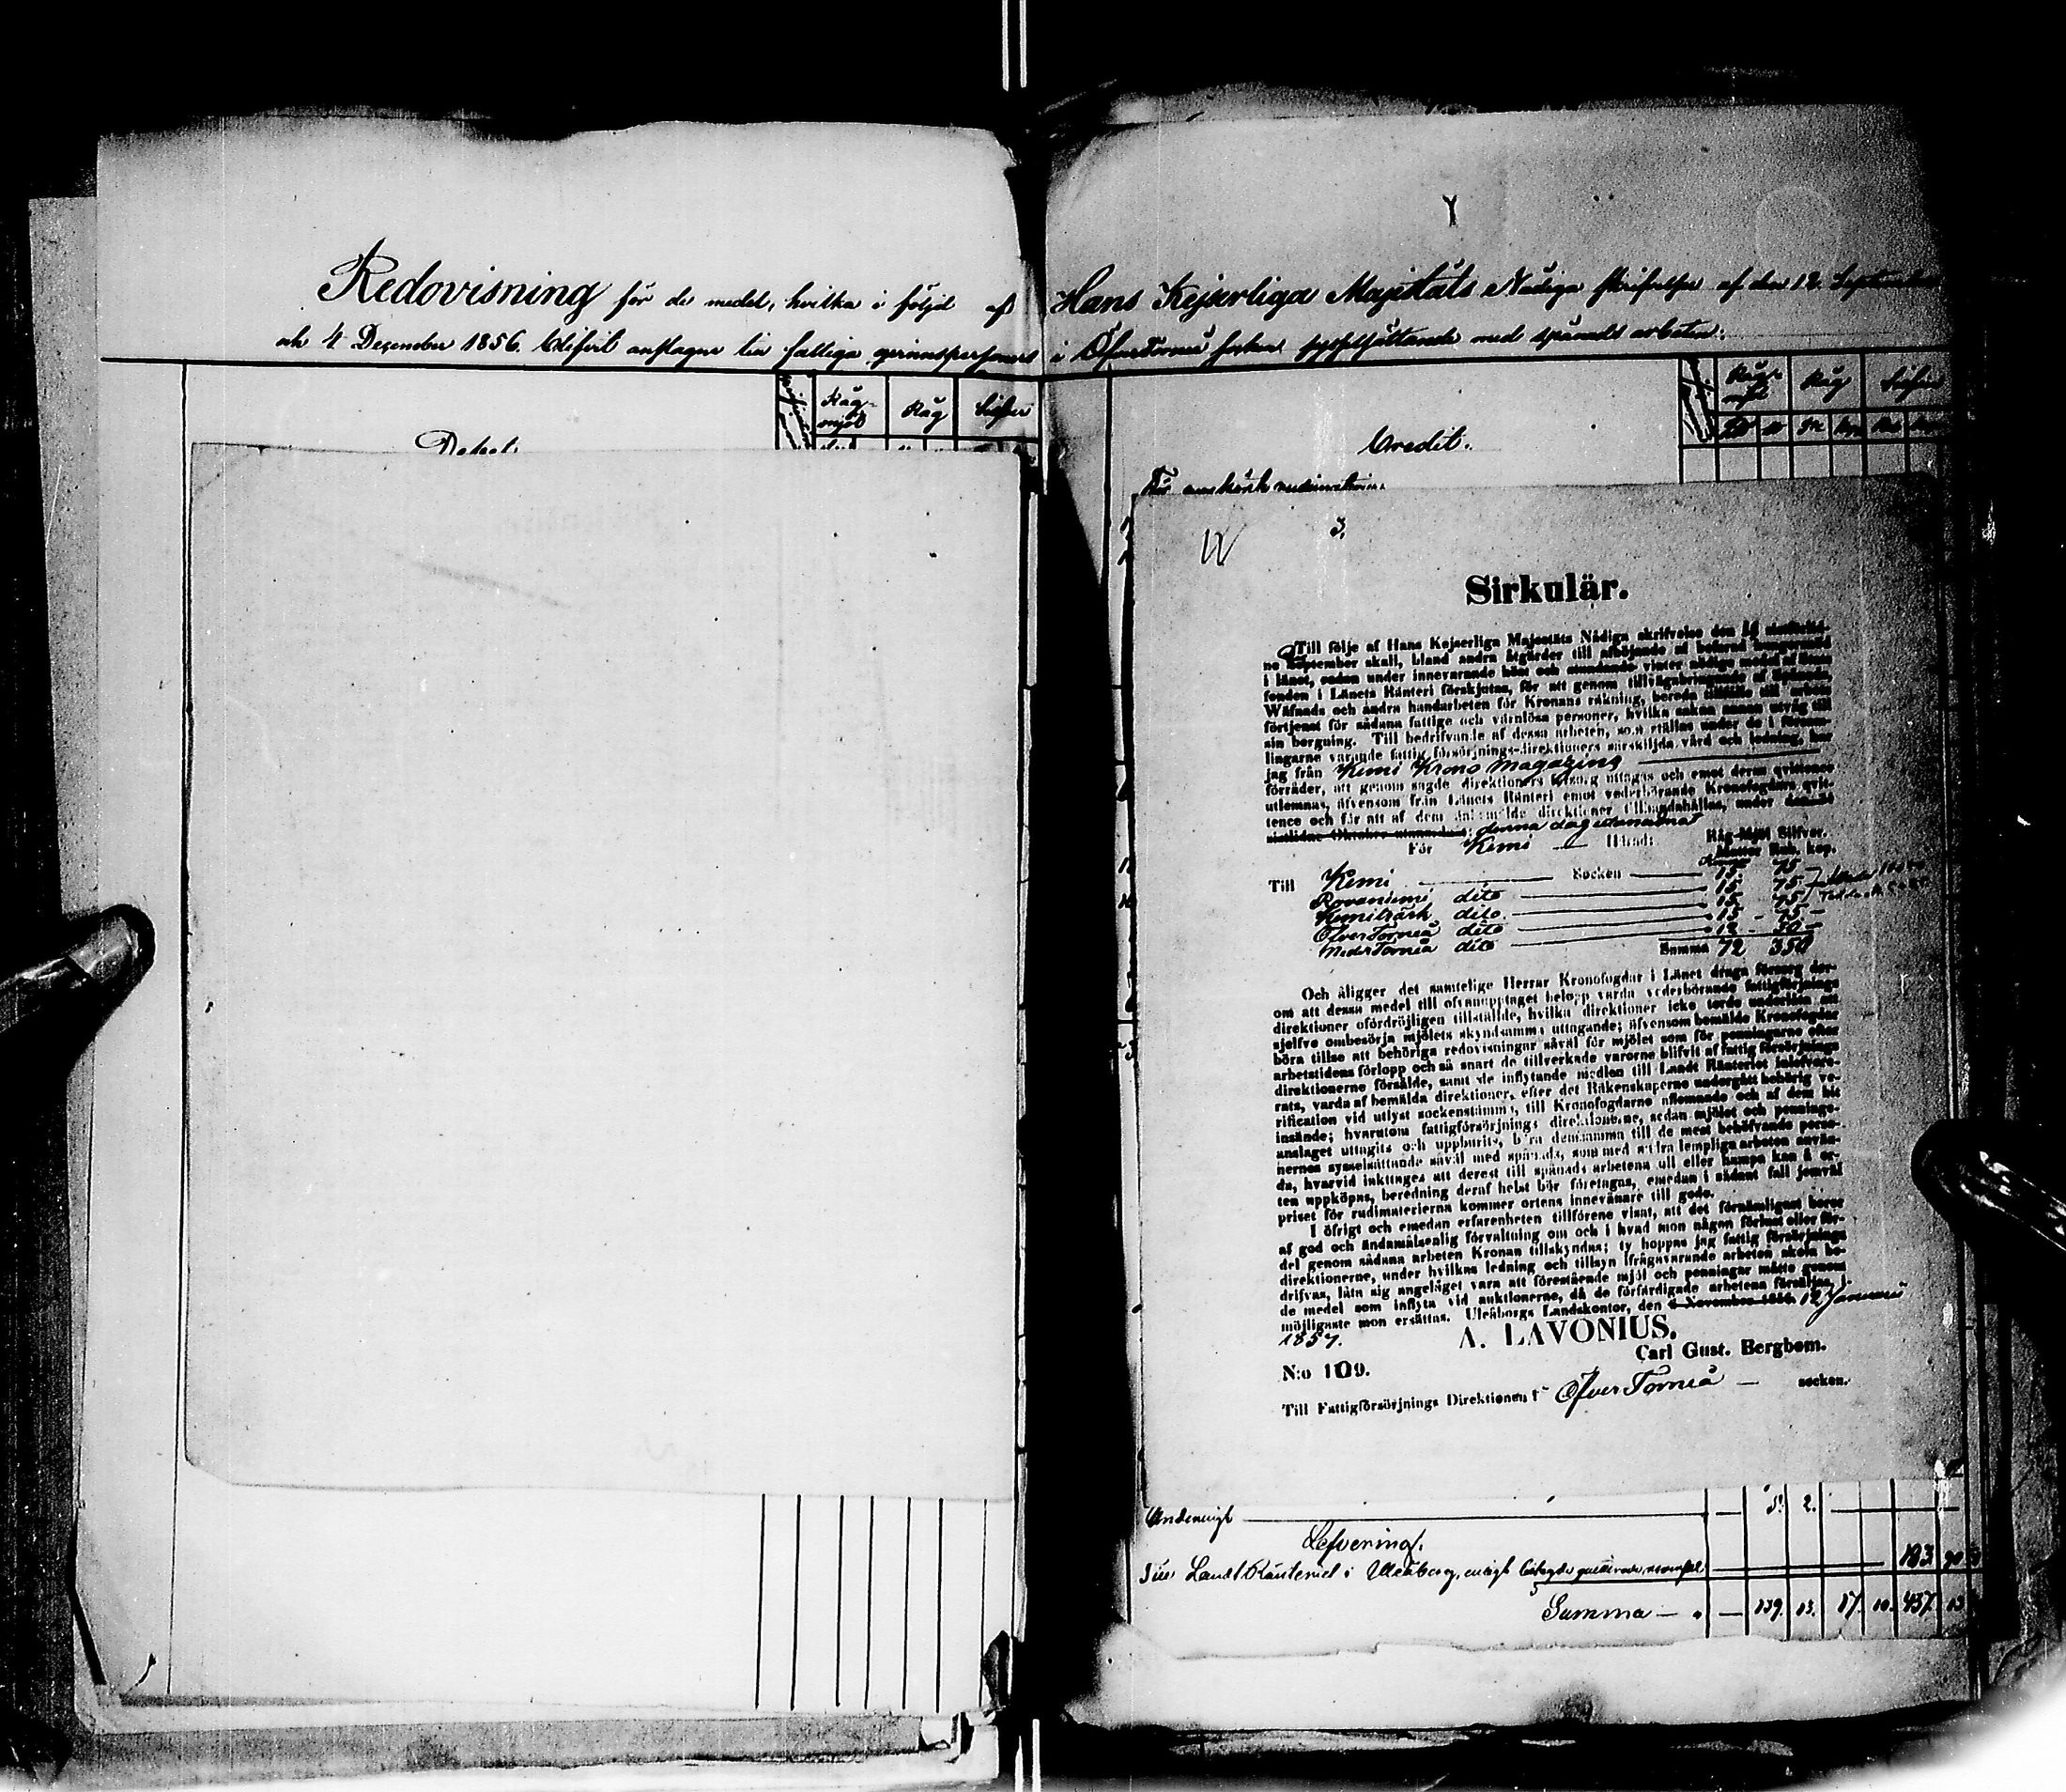 Redovisning för de medel, hvilka i följd af Hans Kejserliga Majestäts Nådiga skrifvelse af den 12 September
och 4 December 1856 blifvit anslagne till fattiga i Öfvertorneå socken sysselsättande med spånads arbeten.
Råg-mjöl Råg Silfver
Debet.
Råg-mjöl Råg Silfver
Credit.
3.
Sirkulär.
Till följe af Hans Kejserliga Majestäts Nådiga skrifvelse den
ne September skall, bland andra åtgärder till afböjande af befarad
i länet, under innevarande höst och vinter nödiga medel af
fonden i Länets Ränteri förskjutas, för att genom tillvägabringande af
Wäfnads och andra handarbeten för Kronans räkning, bereda tillfälle till arbets
förtjenst för sådana fattige och värnlösa personer, hvilka sakna annan utväg till
sin bergning. Till bedrifvande af dessa arbeten, som ställas under de i försam-
lingarne varande fattig försörjnings-direktioners särskiljda vård och ledning, har
jag från Kemi Krono Magazins
förråder, att genom sagde direktioners försorg uttagas och emot deras qvittencer
utlemnas, äfvensom från Länets Ränteri emot vederbörande Kronofogdars qvit-
tence och för att af dem direktioner tillhandahållas, under
sistlidne Oktober denna dag
För Kemi Härad:
Råg-Mjöl Silfver.
Rub. kop.
Till Kemi Socken 15. 75
Rovaniemi dito 15 75
Kemiträsk dito. 15 75
ÖfverTorneå dito 15 - 75 -
NederTorneå dito 12 - 50 -
Summa 72 350
Och åligger det samtelige Herrar Kronofogdar i Länet draga försorg der-
om att dessa medel till ofvanupptaget belopp varda vederbörande fattigförsörjnings
direktioner ofördröjligen tillställde, hvilka direktioner icke torde underlåta att
sjelfve ombesörja mjölets skyndsamma uttagande; äfvensom bemälde Kronofogdar
böra tillse att behöriga redovisningar såväl för mjölet som för penningarne efter
arbetstidens förlopp och så snart de tillverkade varorne blifvit af fattig försörjnings
direktionerne försålde, samt de inflytande medlen till Landt Ränteriet inlefvere-
rats, varda af bemälda direktioner, efter det Räkenskaperne undergått behörig ve-
rification vid utlyst sockenstämma, till Kronofogdarne aflemnade och af dem hit
insände; hvarutom fattigförsörjnings direktionerne, sedan mjölet och pennings-
anslaget uttagits och uppburits, böra densamma till de mest behöfvande perso-
nernes sysselsättande såväl med spånads, som med andra lempliga arbeten använ-
da, hvarvid iakttages att derest till spånads arbetena ull eller hampa kan å or-
ten uppköpas, beredning deraf helst bör företagas, emedan i sådant fall jemväl
priset för rudimaterierna kommer ortens innevånare till godo.
I öfrigt och emedan erfarenheten tillförene visat, att det förnämligast beror
af god och ändamålsenlig förvaltning om och i hvad mon någon förlust eller för-
del genom sådana arbeten Kronan tillskyndas; ty hoppas jag fattig försörjnings
direktionerne, under hvilkas ledning och tillsyn ifrågavarande arbeten skola be-
drifvas, låta sig angeläget vara att förestående mjöl och penningar måtte genom
de medel som inflyta vid auktionerne, då de förfärdigade arbetena försäljas, i
möjligaste mon ersättas. Uleåborgs Landskontor, den 6 November 1856. 12 Januarii
1857.
A. LAVONIUS.
Carl Gust. Bergbom.
N:o 109.
Till Fattigförsörjnings Direktionen i Öfver Torneå socken.
Lefvering.
Till Landt Ränteriet i Uleåborg, enligt 183 90
Summa 139. 13. 17. 10. 437 13